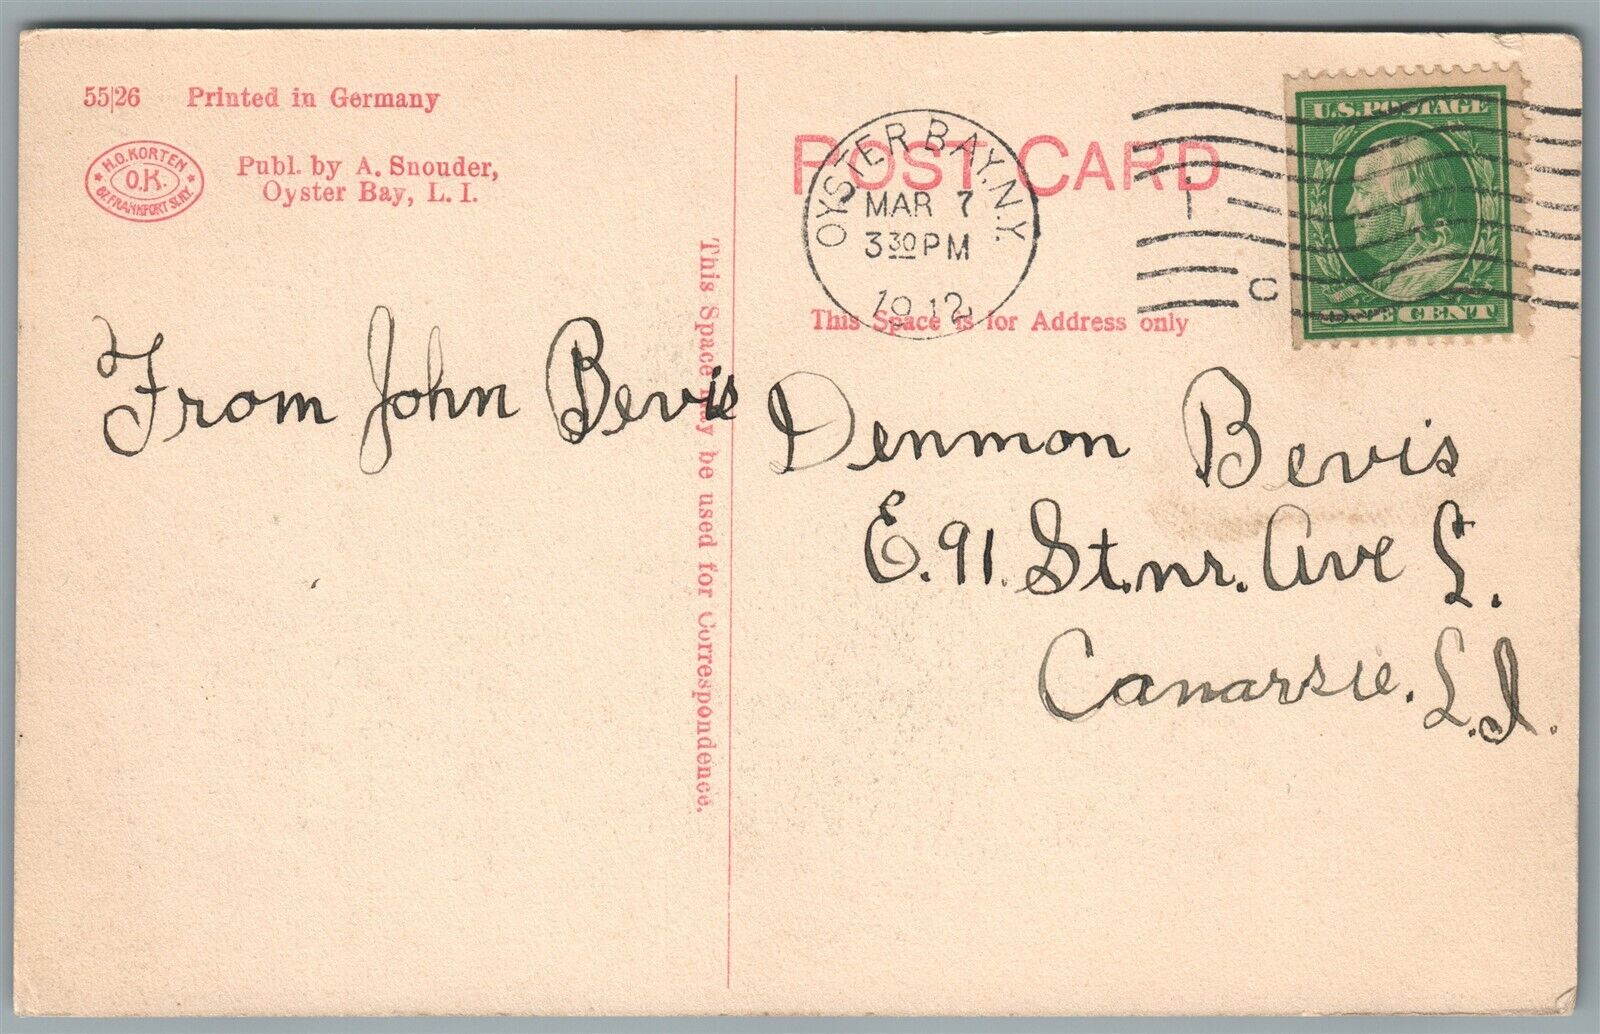 55|26 Printed in Germany
★ H.O. KORTEN ★
O.K.
62. FRANKFORT ST. N.Y.
Publ. by A. Snouder,
Oyster Bay, L. I.
From John Bevis
This Space may be used for Correspondence.
POST CARD
This Space is for Address only
OYSTER BAY. N.Y.
MAR 7
3 30 PM
1912
C
U.S. POSTAGE
ONE CENT
Denmon Bevis
E. 91. St. nr. Ave L.
Canarsie. L.I.